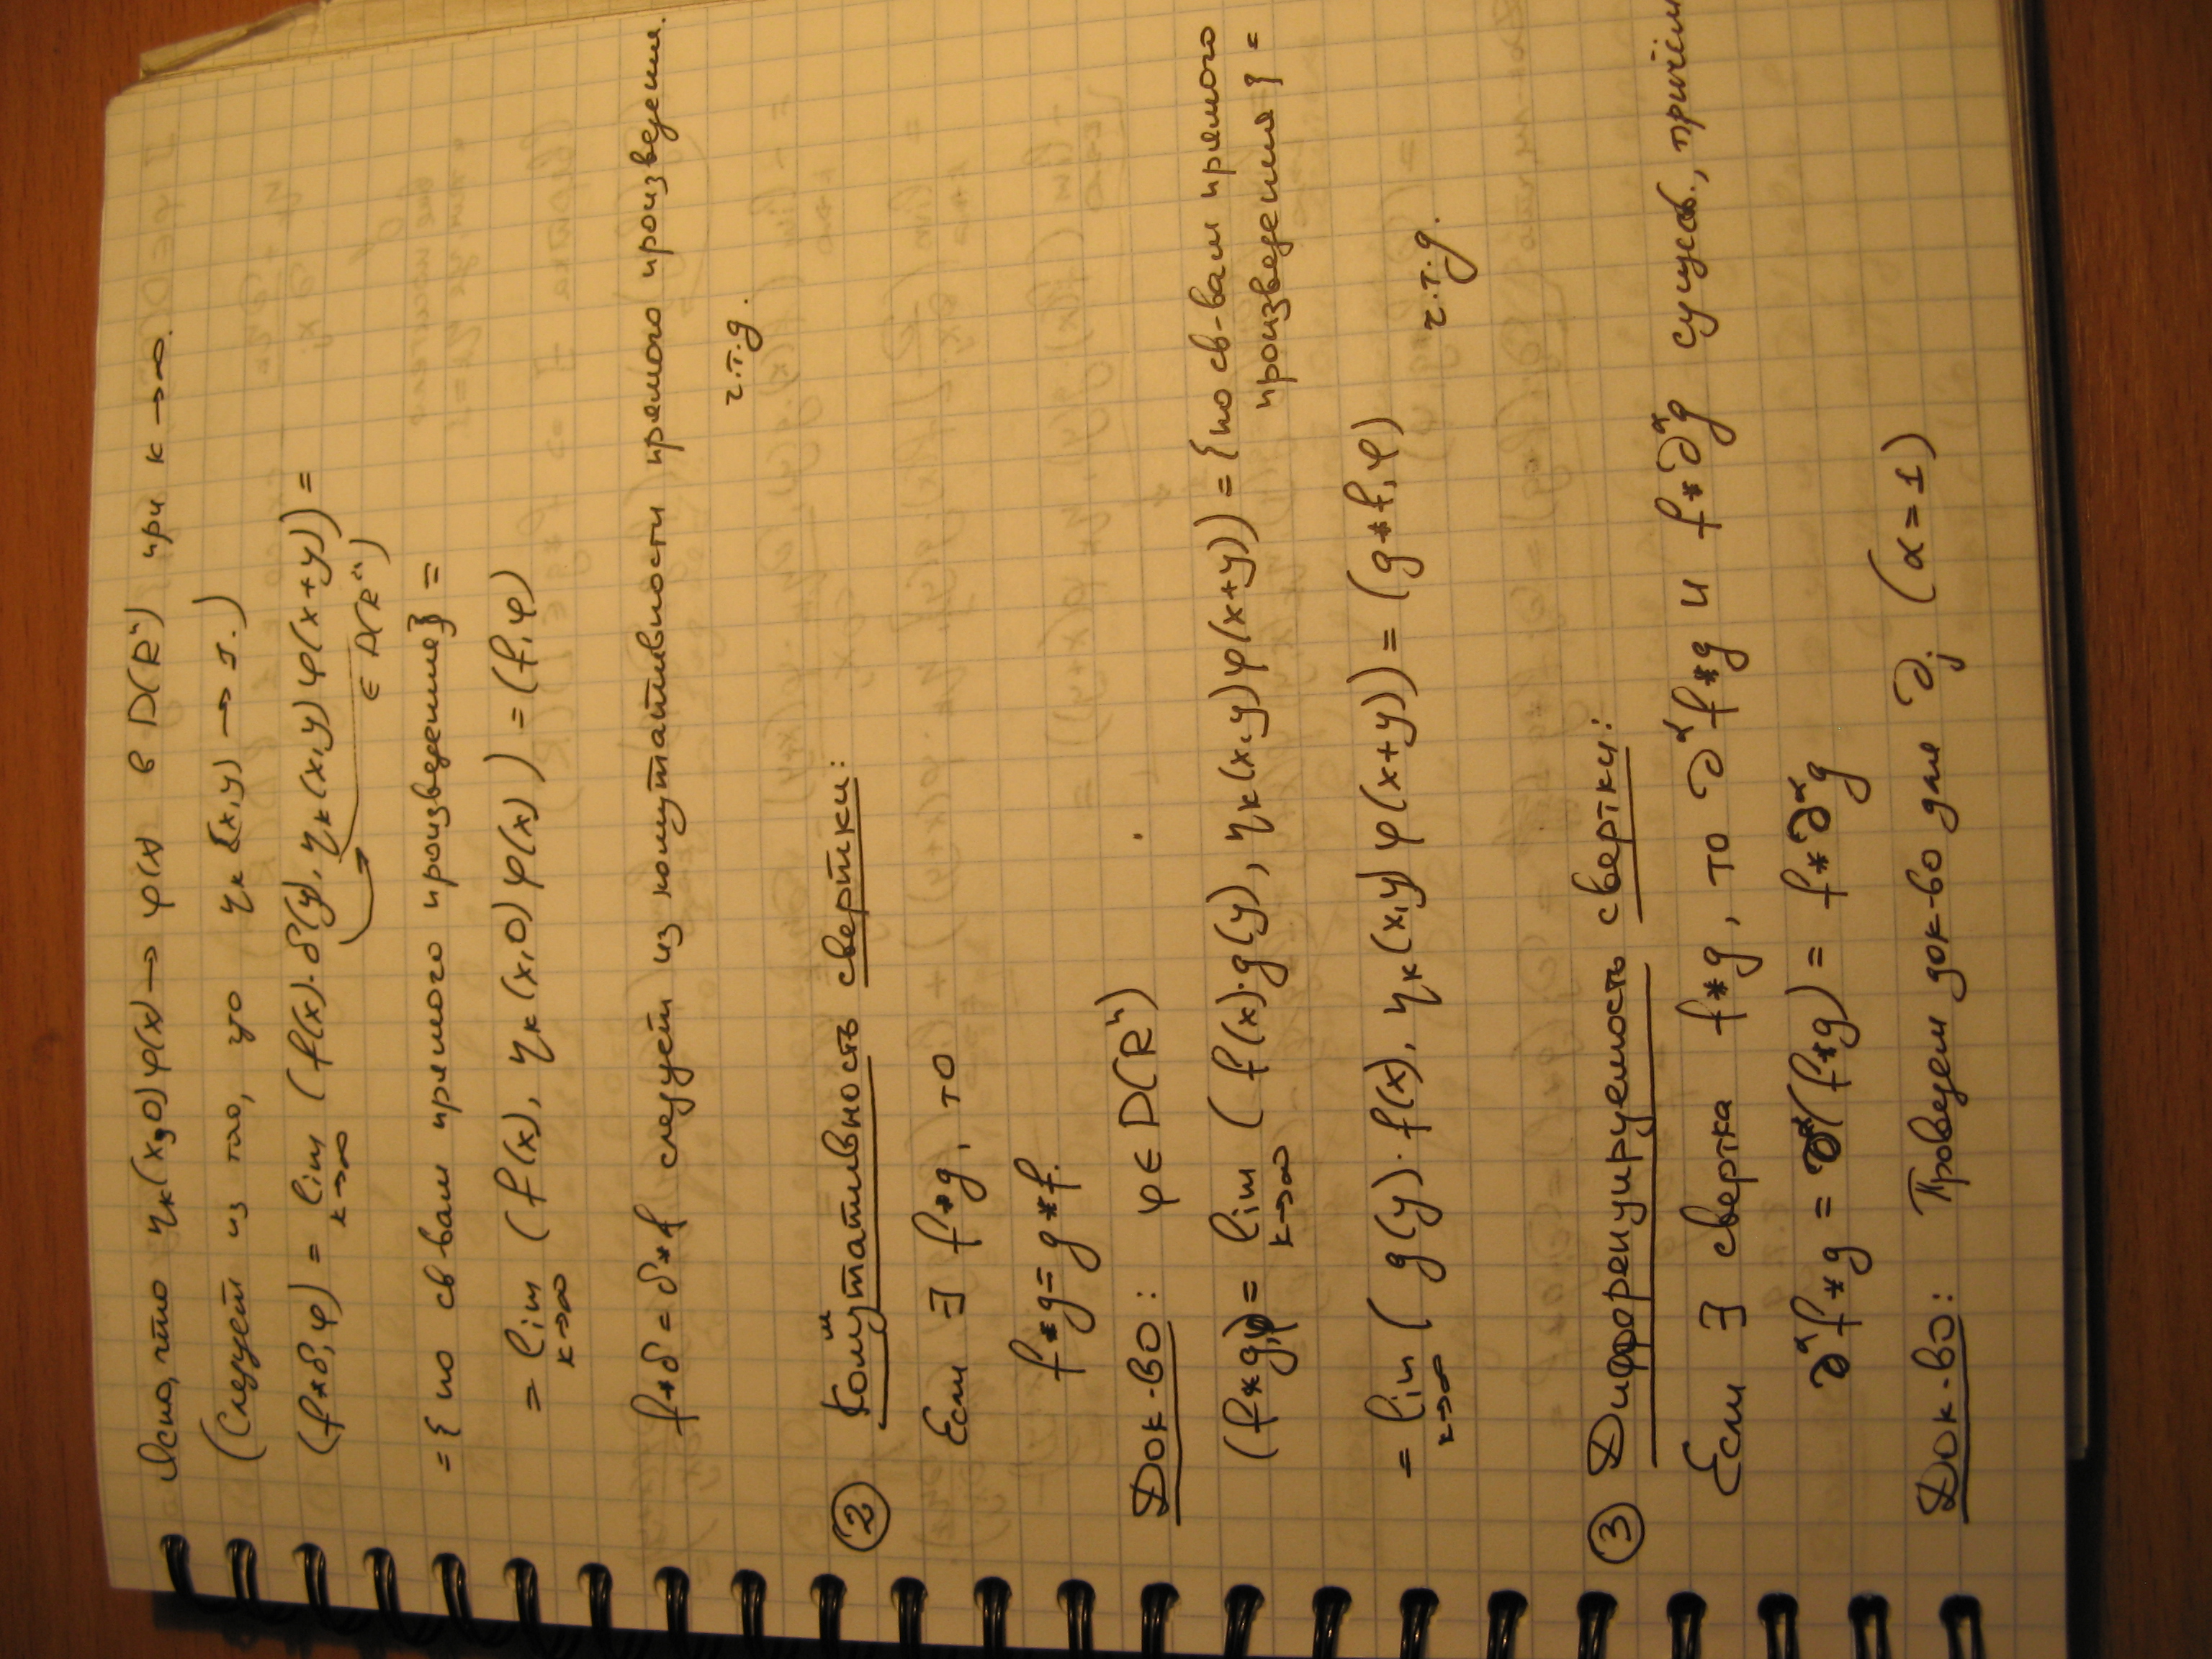 Ясно, что ηₖ(x,0)φ(x) → φ(x) в D(Rⁿ) при k→∞.
(Следует из того, что ηₖ(x,y) → 1.)
(f*δ, φ) = lim (f(x)·δ(y), ηₖ(x,y)φ(x+y)) =
k→∞
∈ D(R²ⁿ)
= {по св-вам прямого произведения} =
= lim (f(x), ηₖ(x,0)φ(x)) = (f,φ)
k→∞
f*δ = δ*f следует из комутативности прямого произведения.
ч.т.д.
② Коммутативность свертки:
Если ∃ f*g, то
f*g = g*f.
Док-во: φ∈D(Rⁿ)
(f*g,φ) = lim (f(x)·g(y), ηₖ(x,y)φ(x+y)) = {по св-вам прямого
k→∞ произведения} =
= lim (g(y)·f(x), ηₖ(x,y)φ(x+y)) = (g*f,φ)
k→∞
ч.т.д.
③ Дифференцируемость свертки:
Если ∃ свертка f*g, то ∂ᵅf*g и f*∂ᵅg существ., причём
∂ᵅf*g = ∂ᵅ(f*g) = f*∂ᵅg
Док-во: Проведем док-во для ∂ⱼ (α=1)